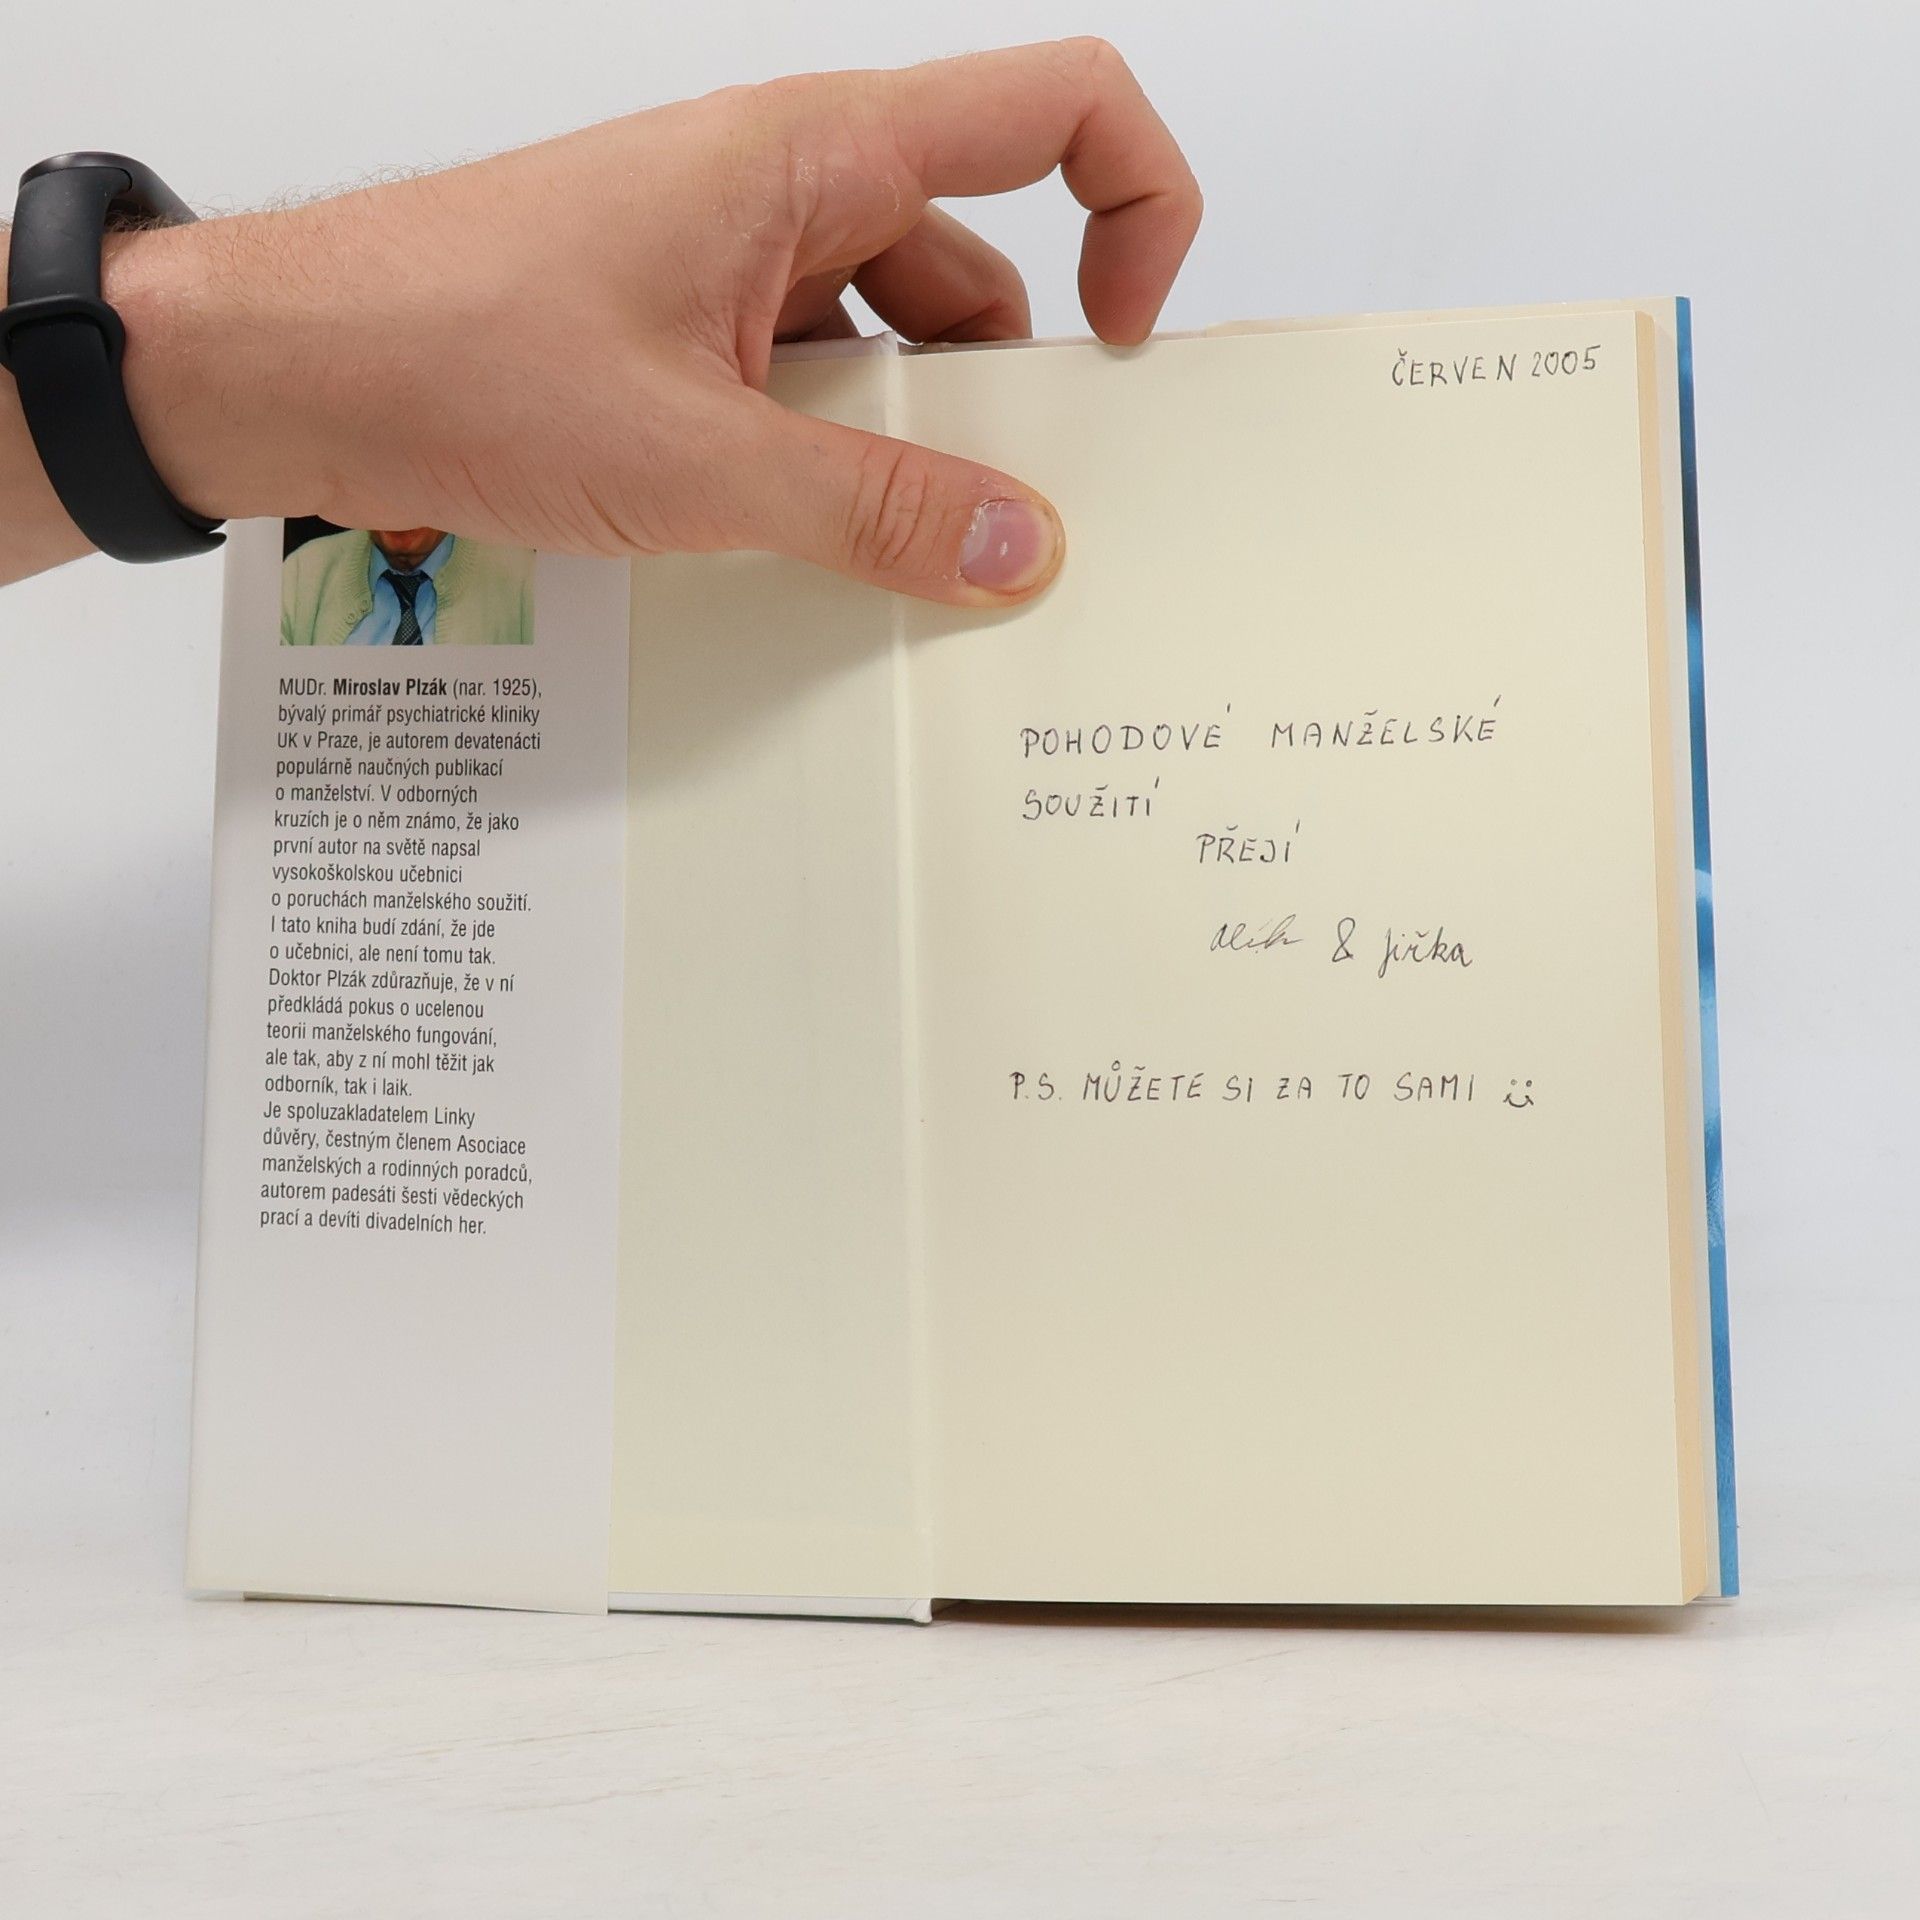 MUDr. Miroslav Plzák (nar. 1925),
bývalý primář psychiatrické kliniky
UK v Praze, je autorem devatenácti
populárně naučných publikací
o manželství. V odborných
kruzích je o něm známo, že jako
první autor na světě napsal
vysokoškolskou učebnici
o poruchách manželského soužití.
I tato kniha budí zdání, že jde
o učebnici, ale není tomu tak.
Doktor Plzák zdůrazňuje, že v ní
předkládá pokus o ucelenou
teorii manželského fungování,
ale tak, aby z ní mohl těžit jak
odborník, tak i laik.
Je spoluzakladatelem Linky
důvěry, čestným členem Asociace
manželských a rodinných poradců,
autorem padesáti šesti vědeckých
prací a devíti divadelních her.
ČERVEN 2005
POHODOVÉ MANŽELSKÉ
SOUŽITÍ
PŘEJÍ
& Jiřka
P.S. MŮŽETE SI ZA TO SAMI